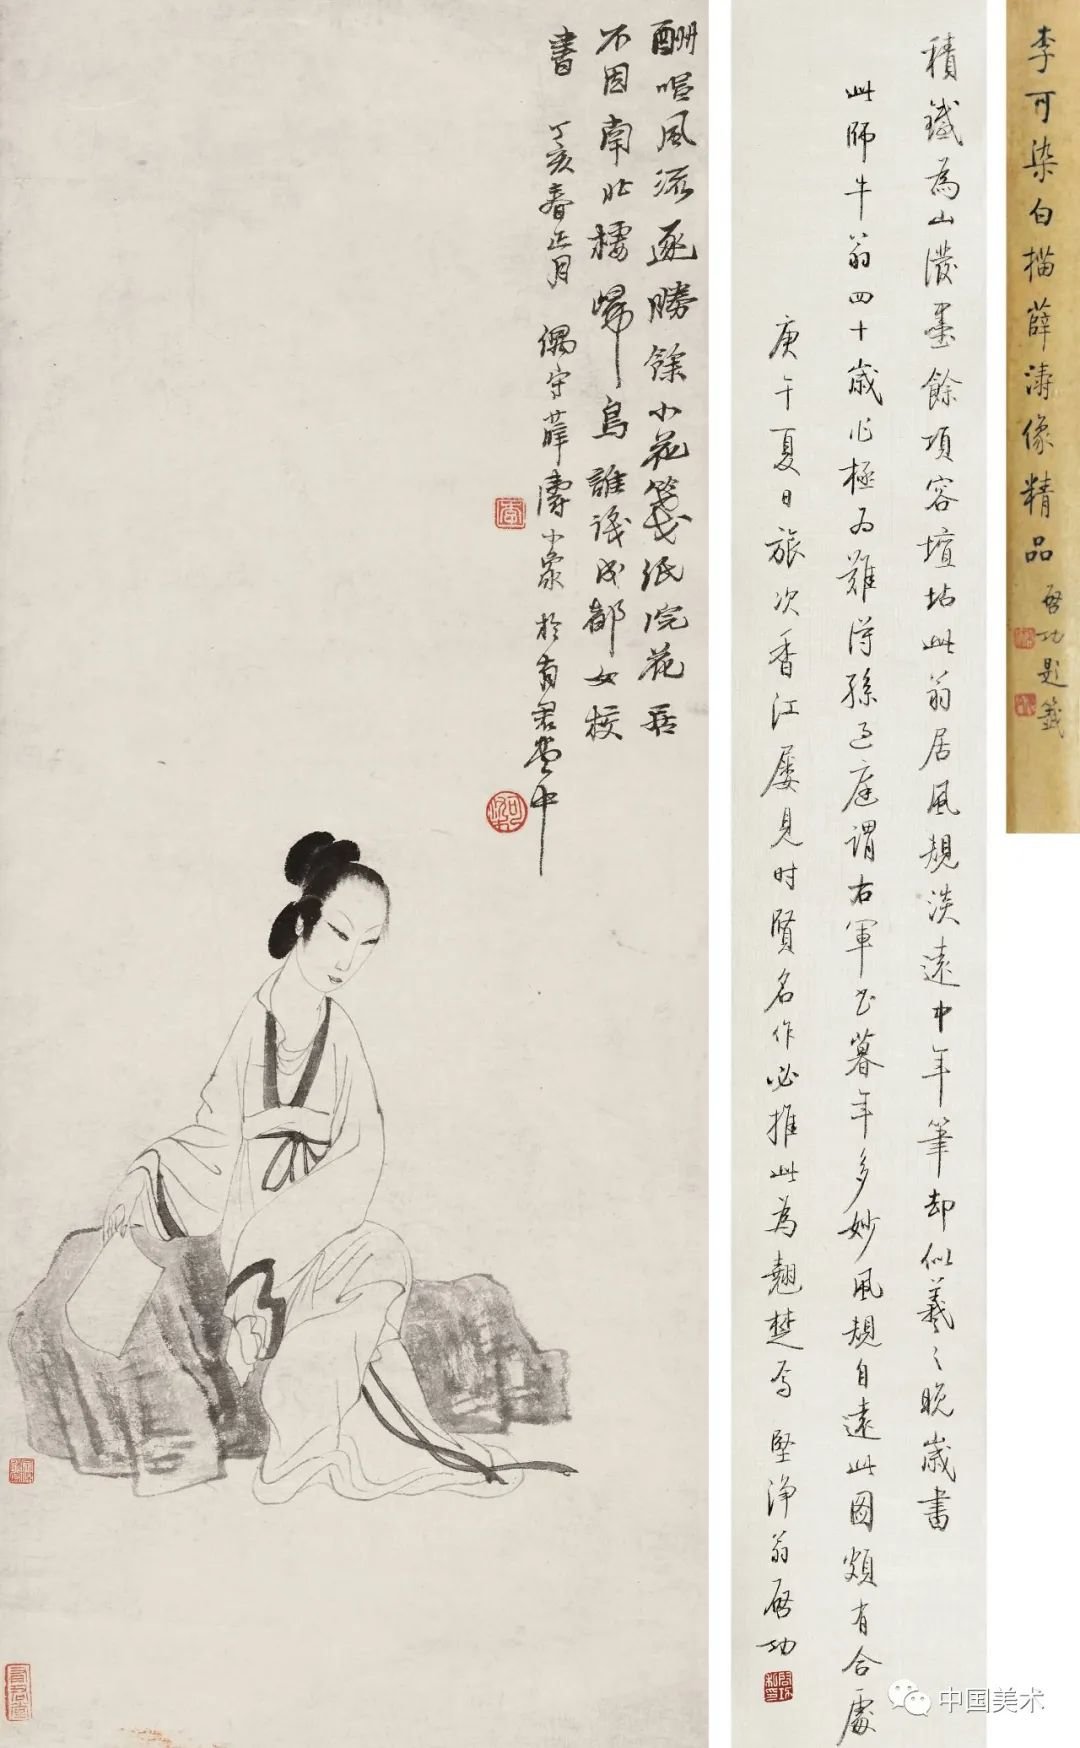 酬唱风流逐勝餘小花箋紙浣花居
不因南北棲歸鳥誰識成都女校
書 丁亥春正月 偶寫薛濤小象於有君堂中
積鐵為山潑墨餘項容壇坫此翁居風規淡遠中年筆却似羲之晚歲書
此師牛翁四十歲作極为難得孫過庭謂右軍書暮年多妙風規自遠此圖頗有合處
庚午夏日旅次香江屢見时賢名作必推此為翹楚焉 堅淨翁启功
李可染白描薛濤像精品
启功題籤
中国美术